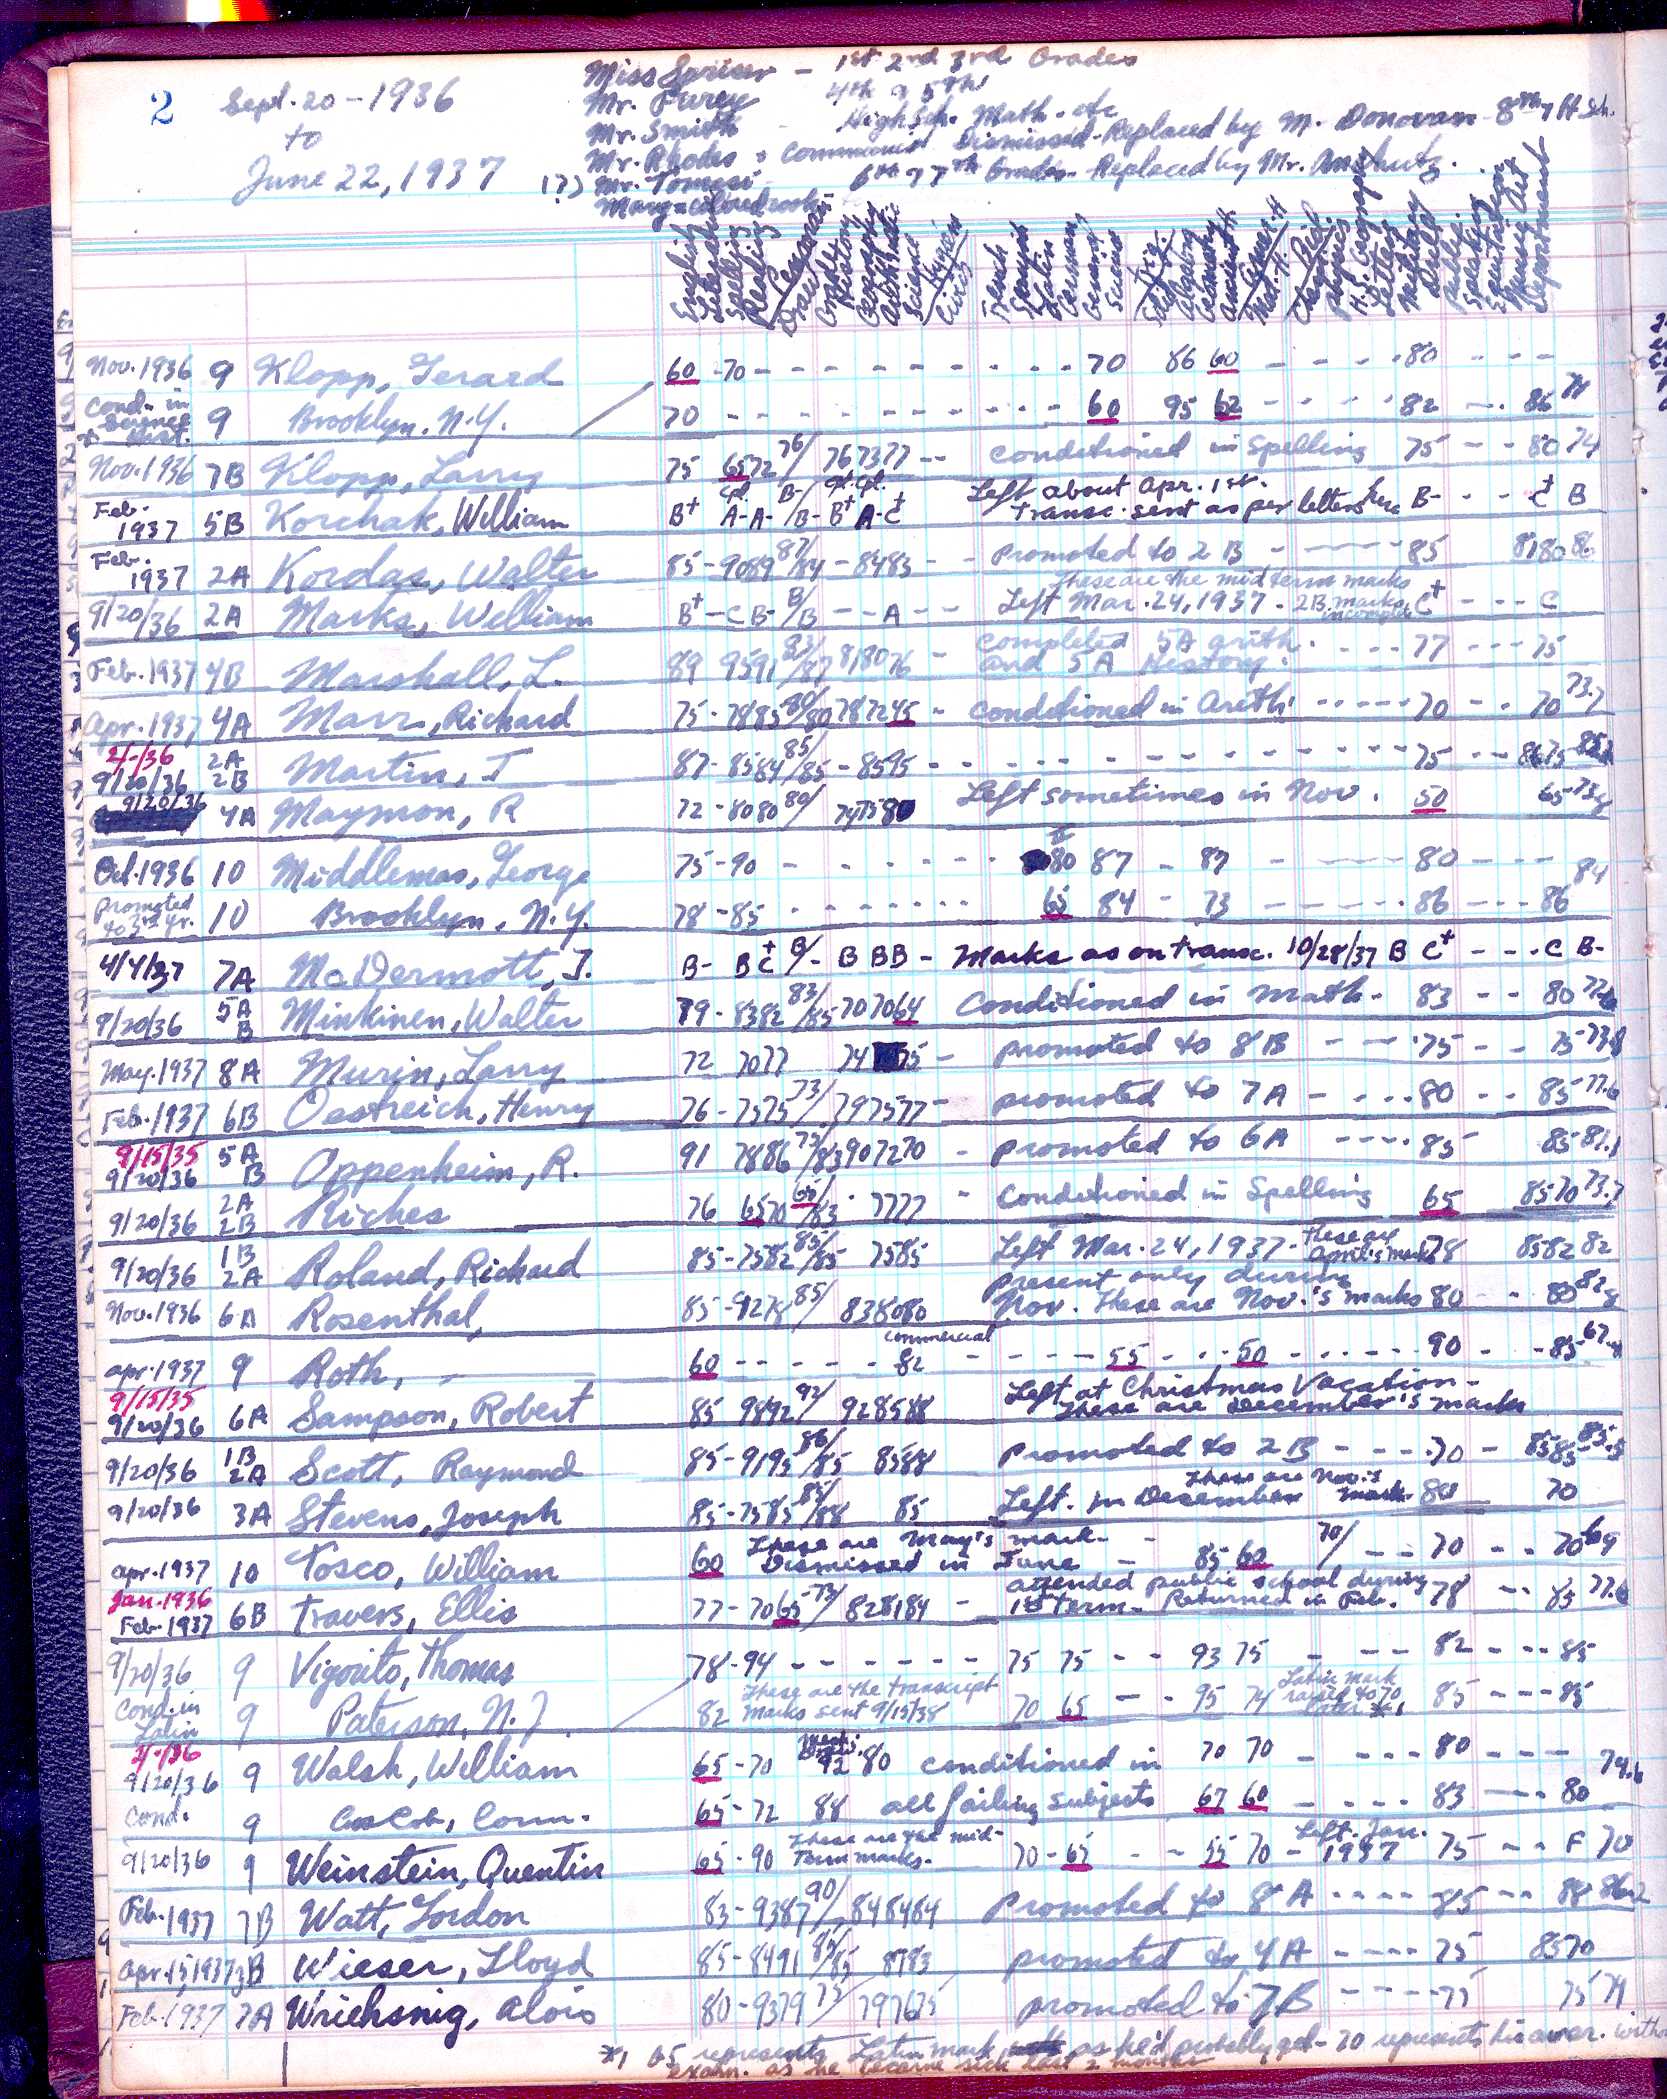 2 Sept. 20 - 1936
to
June 22, 1937
Miss - 1st 2nd 3rd Grades
Mr. Furey 4th & 5th
Mr. Smith - High Sch. Math. etc
Mr. Rhodes - Communist Dismissed - Replaced by M. Donovan - 8th
(?) Mr. Tomasi - 6th 7th Grades - Replaced by Mr. Anshutz.
Mary - colored cook
English Spelling Reading History Geography Arithmetic Science Civics French Spanish Latin German General Science Algebra Geometry Ancient H. Military Drill Deportment
Nov. 1936 9 Klopp, Gerard 60 - 70 - - - - - - - - - 70 86 60 - - - - 80 - - - -
Cond. in Science & Hist. 9 Brooklyn. N.Y. 70 - - - - - - - - - - - 60 95 62 - - - - 82 - - 86 74
Nov. 1936 7B Klopp, Larry 75 65 72 76/ 76 73 77 - - Conditioned in Spelling 75 - - 80 74
Feb. 1937 5B Korchak, William B+ A- A- B-/B- B+ A- C+ Left about Apr. 1st. Transc. sent as per letters B- - - C+ B
Feb. 1937 2A Kordas, Walter 85 - 90 89 87/84 - 84 83 - - promoted to 2B - - - - 85 81 80 86
9/20/36 2A Marks, William B+ - C B- B/B - - A - - Left Mar. 24, 1937 - 2B marks incomplete C+ - - - C
These are the mid term marks
Feb. 1937 4B Marshall, L. 89 95 91 83/87 81 80 76 - Completed 5A arith. and 5A History. - - - 77 - - - 75
Apr. 1937 4A Marr, Richard 75 - 78 85 80/80 78 72 45 - Conditioned in Arith. - - - - - 70 - - 70 73.7
2/-/36 2A
9/20/36 2B Martin, J 87 - 85 84 85/85 - 85 95 - - - - - - - - - - - 75 - - 86 75
9/20/36 4A Maymon, R 72 - 80 80 80/ 74 75 80 Left sometimes in Nov. 50 65 73
Oct. 1936 10 Middlemas, George 75 - 90 - - - - - - - 80 87 - 87 - - - - 80 - - -
Promoted to 3rd yr. 10 Brooklyn, N.Y. 78 - 85 - - - - - - - 65 84 - 73 - - - - 86 - - - 86 84
4/4/37 7A McDermott, J. B- B C+ B/- B B B - Marks as on transc. 10/28/37 B C+ - - - C B-
9/20/36 5A B Minkinen, Walter 79 - 83 82 83/85 70 70 64 Conditioned in Math. - 83 - - 80
May. 1937 8A Murin, Larry 72 70 77 74 75 - promoted to 8B - - 75 - - 75 73.8
Feb. 1937 6B Oestreich, Henry 76 - 75 75 73/ 79 75 77 - promoted to 7A - - - - 80 - - 85 77.6
9/15/35 5A
9/20/36 B Oppenheim, R. 91 78 86 73/83 90 72 70 - promoted to 6A - - - - 85 85 81.1
9/20/36 2A 2B Riches 76 65 70 65/83 - 77 77 - Conditioned in Spelling 65 85 70 73.7
9/20/36 1B 2A Roland, Richard 85 - 75 82 85/85 75 85 Left Mar. 24, 1937 - these are April's marks 78 85 82 82
Nov. 1936 6A Rosenthal, 85 - 92 78 85/ 83 80 80 present only during Nov. These are Nov.'s marks 80 - - 80 82
Apr. 1937 9 Roth, - 60 - - - - - commercial 82 - - - - 55 - - - 50 - - - - - 90 - - 85 67
9/15/35
9/20/36 6A Sampson, Robert 85 98 92 92/ 92 85 88 Left at Christmas Vacation - These are December's marks
9/20/36 1B 2A Scott, Raymond 85 - 91 95 86/85 85 88 Promoted to 2B - - - 70 - 85 85
9/20/36 3A Stevens, Joseph 85 - 75 85 85/88 85 Left in December These are Nov.'s marks - 80 70
Apr. 1937 10 Tosco, William 60 These are May's mark - Dismissed in June - 85 60 70/ - - 70 - - 70 69
Jan. 1936
Feb. 1937 6B Travers, Ellis 77 - 70 65 - 73/ 82 81 84 - attended public school during 1st term - Returned in Feb. 78 - - 85 77.6
9/20/36 9 Vigorito, Thomas 78 - 94 - - - - - - 75 75 - - 93 75 - - - 82 - - - 85
Cond. in Latin 9 Paterson, N.J. 82 These are the transcript marks sent 9/15/38 70 65 - - 95 74 Latin mark raised to 70 later *1 85 - - - 85
2/-/36
9/20/36 9 Walsh, William 65 - 70 92 80 conditioned in 70 70 - - - - 80 - - -
Cond. 9 Cos Cob, Conn. 65 - 72 88 all failing subjects 67 60 - - - - 83 - - - 80 74.6
9/20/36 9 Weinstein, Quentin 65 - 90 These are the mid-term marks. 70 - 65 - - 55 70 - Left Jan. 1937 75 - - F 70
Feb. 1937 7B Watt, Gordon 83 - 93 87 90/ 84 84 84 Promoted to 8A - - - - 85 - - 88 86.2
Apr. 15, 1937 3B Wieser, Lloyd 85 - 84 91 85/85 87 83 promoted to 4A - - - - 75 85 70
Feb. 1937 7A Wriehsnig, Alois 80 - 93 79 75/ 79 76 75 promoted to 7B - - - - 75 75 79
*1 65 represents Latin mark as he'd probably get - 70 represents his aver. without
exam. as he became sick last 2 months